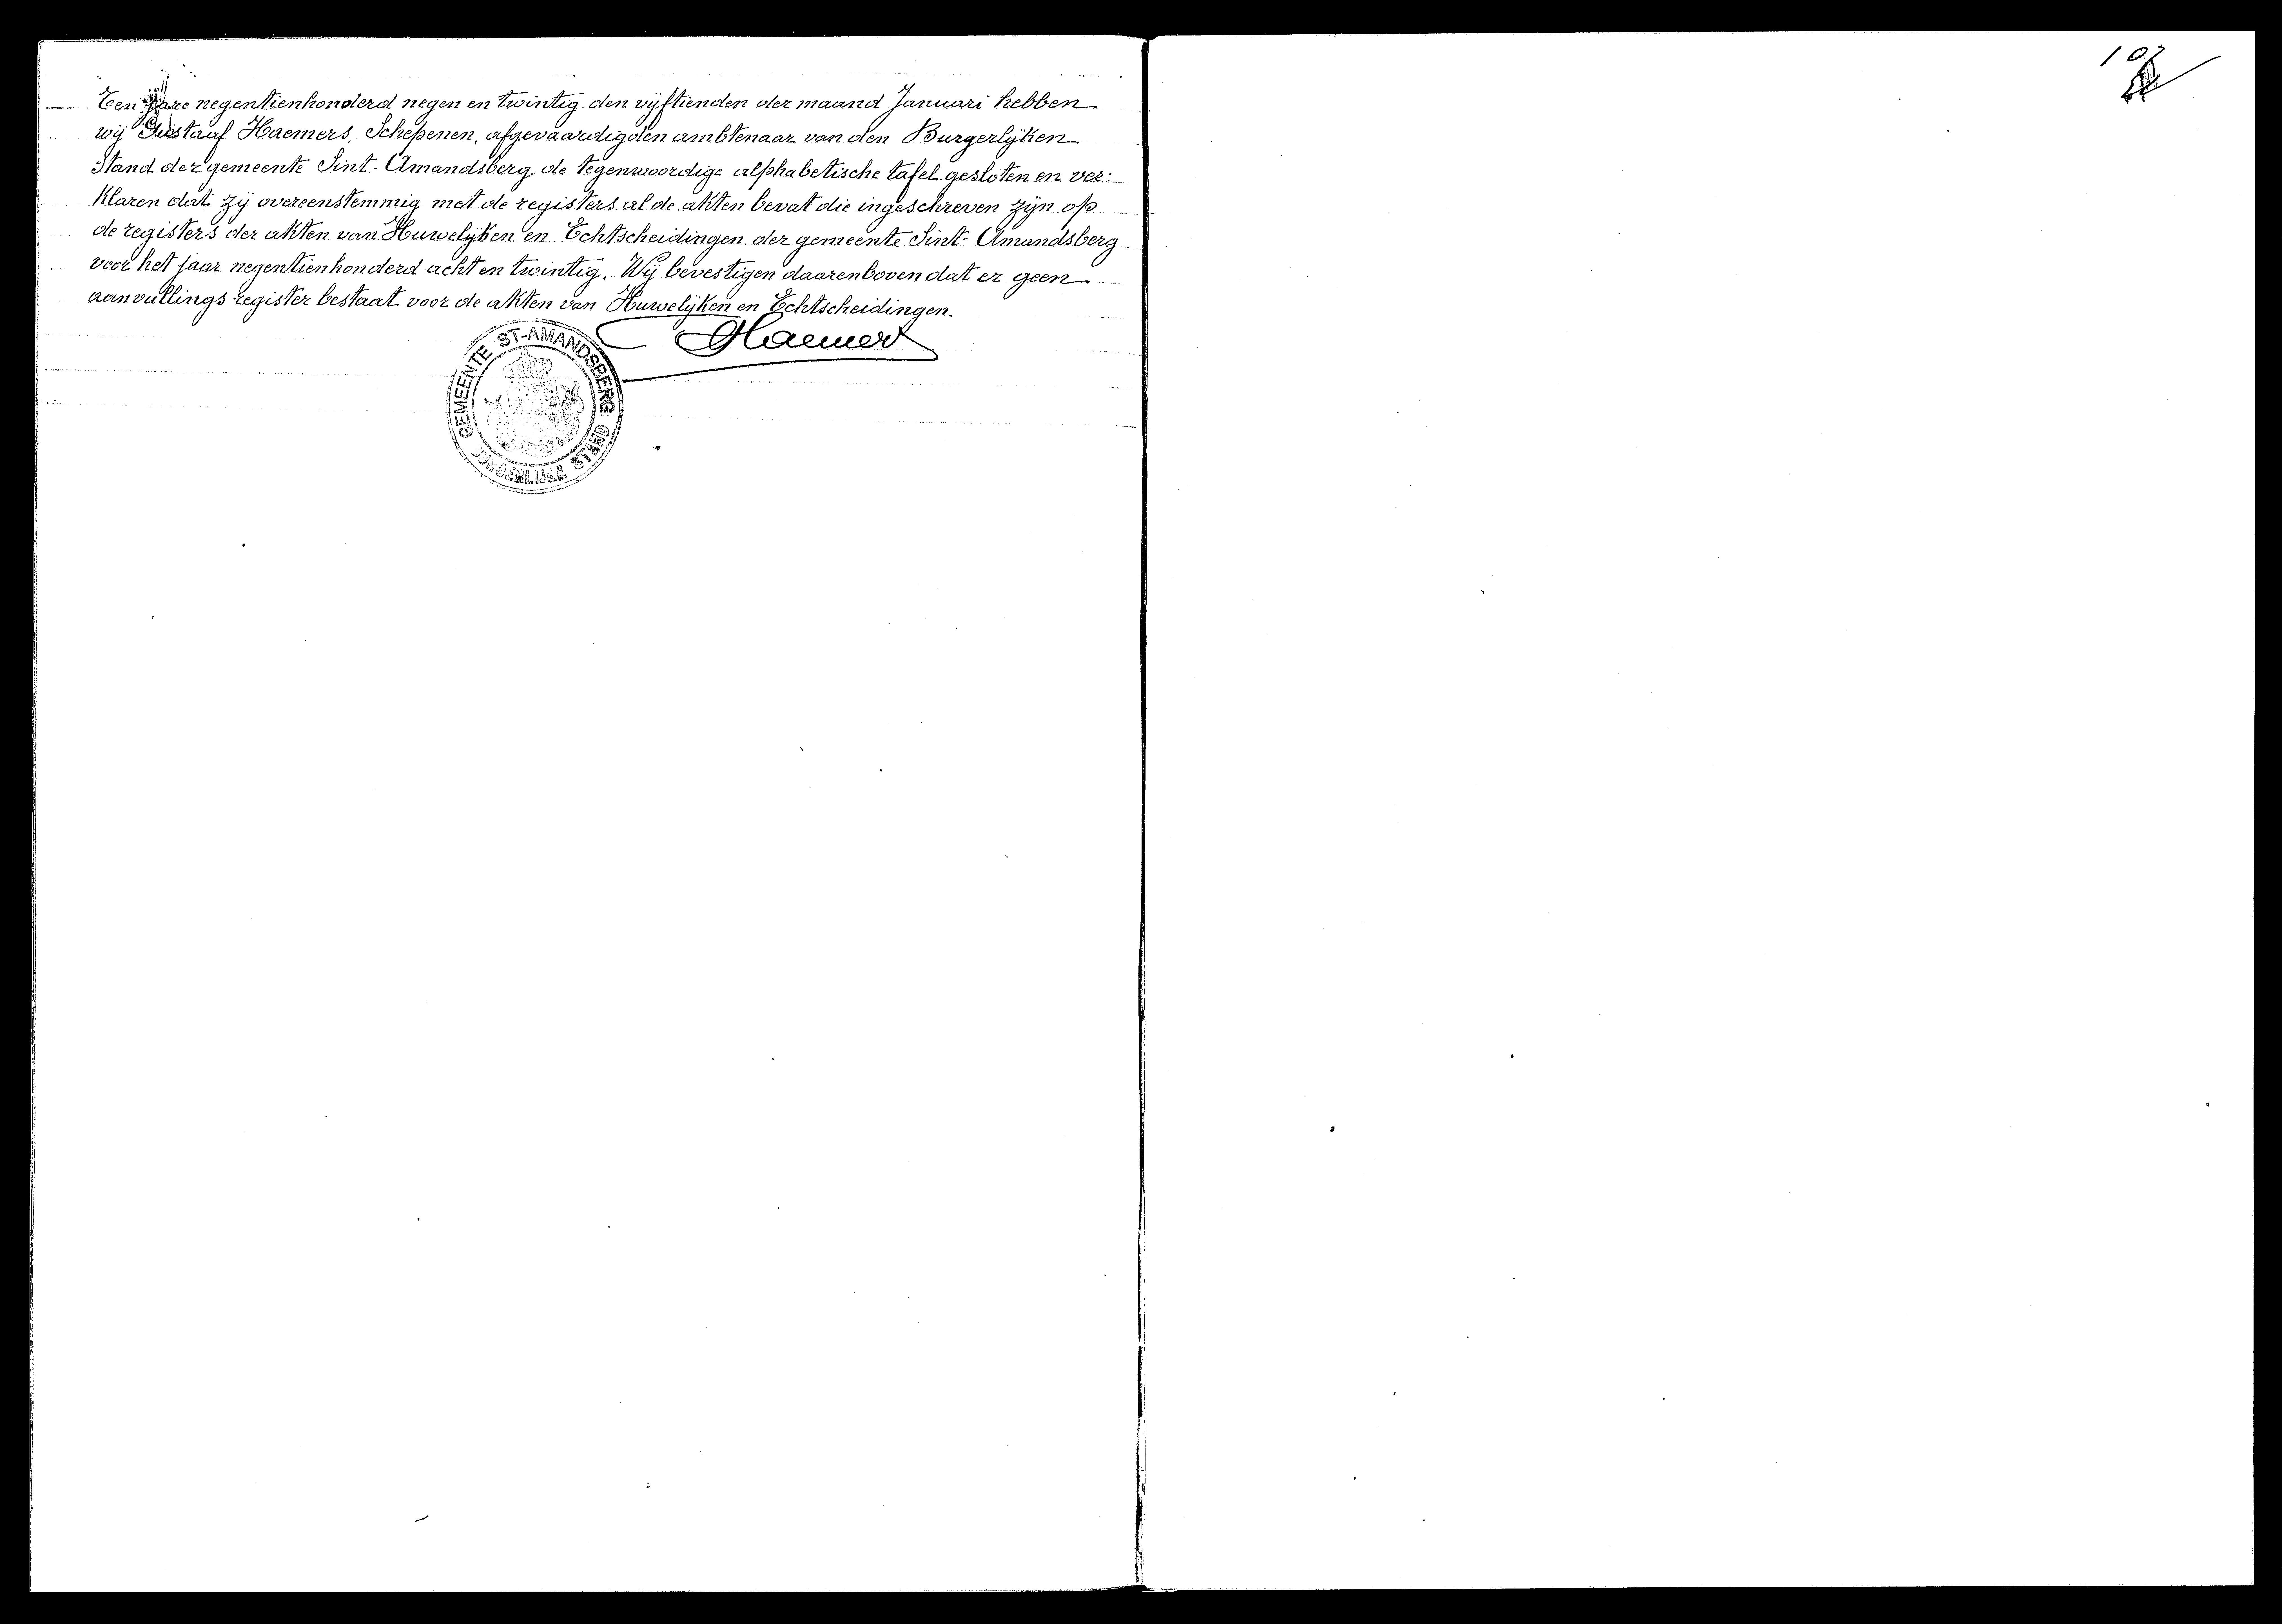 Een jare negentienhonderd negen en twintig den vijftienden der maand Januari hebben
wij Gustaaf Haemers, Schepenen, afgevaardigden ambtenaar van den Burgerlijken
Stand der gemeente Sint-Amandsberg de tegenwoordige alphabetische tafel gesloten en ver:
klaren dat zij overeenstemmig met de registers al de akten bevat die ingeschreven zijn op
de registers der akten van Huwelijken en Echtscheidingen der gemeente Sint-Amandsberg
voor het jaar negentienhonderd acht en twintig. Wij bevestigen daarenboven dat er geen
aanvullings register bestaat voor de akten van Huwelijken en Echtscheidingen.
GHaemers
GEMEENTE ST-AMANDSBERG
BURGERLIJKE STAND